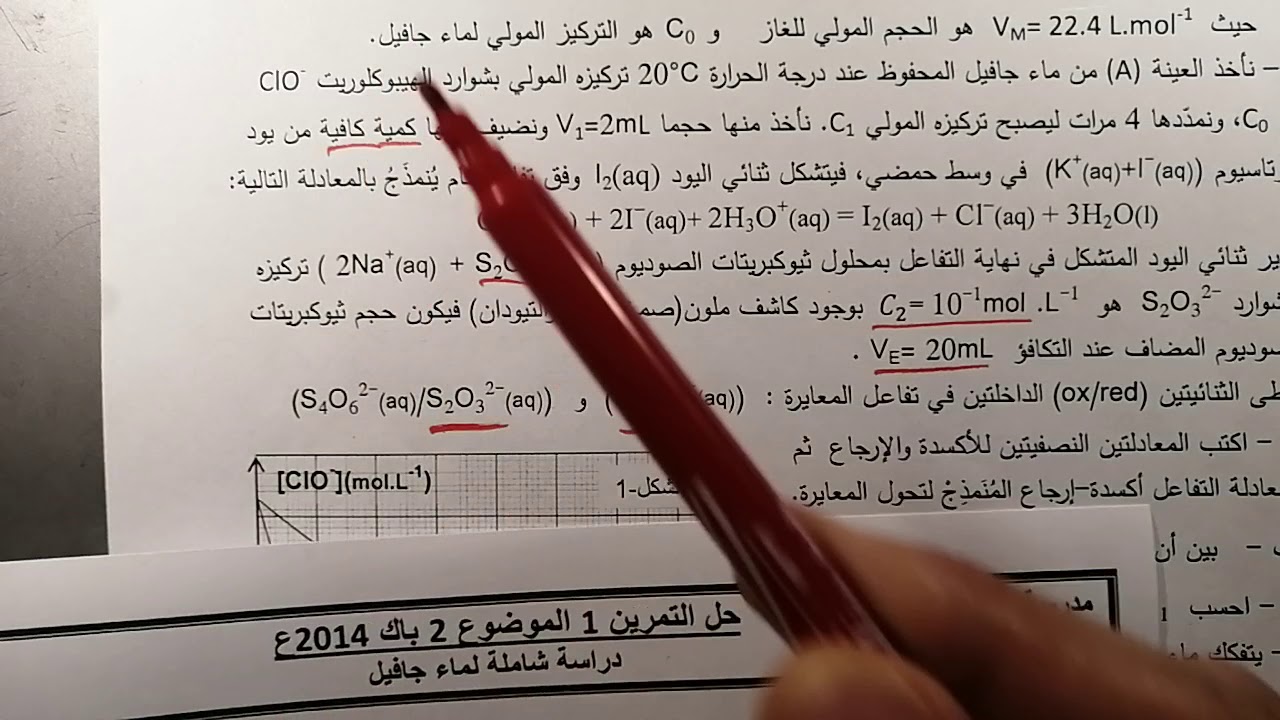 حيث VM= 22.4 L.mol-1 هو الحجم المولي للغاز و C0 هو التركيز المولي لماء جافيل.
– نأخذ العينة (A) من ماء جافيل المحفوظ عند درجة الحرارة 20°C تركيزه المولي بشوارد الهيبوكلوريت ClO-
C0، ونمدّدها 4 مرات ليصبح تركيزه المولي C1. نأخذ منها حجما V1=2mL ونضيف كمية كافية من يود
(K+(aq)+I−(aq)) في وسط حمضي، فيتشكل ثنائي اليود I2(aq) وفق يُنمذَجُ بالمعادلة التالية:
+ 2I−(aq)+ 2H3O+(aq) = I2(aq) + Cl−(aq) + 3H2O(l)
ثنائي اليود المتشكل في نهاية التفاعل بمحلول ثيوكبريتات الصوديوم (2Na+(aq) + تركيزه
S2O3 2− هو C2= 10−1mol .L−1 بوجود كاشف ملون فيكون حجم ثيوكبريتات
المضاف عند التكافؤ VE= 20mL .
الثنائيتين (ox/red) الداخلتين في تفاعل المعايرة : (aq)) و (S4O6 2−(aq)/S2O3 2−(aq))
– اكتب المعادلتين النصفيتين للأكسدة والإرجاع ثم
التفاعل أكسدة–إرجاع المُنَمذِجْ لتحول المعايرة.
[ClO-](mol.L-1)
– بين أن
– احسب
– يتفكك
حل التمرين 1 الموضوع 2 باك 2014ع
دراسة شاملة لماء جافيل